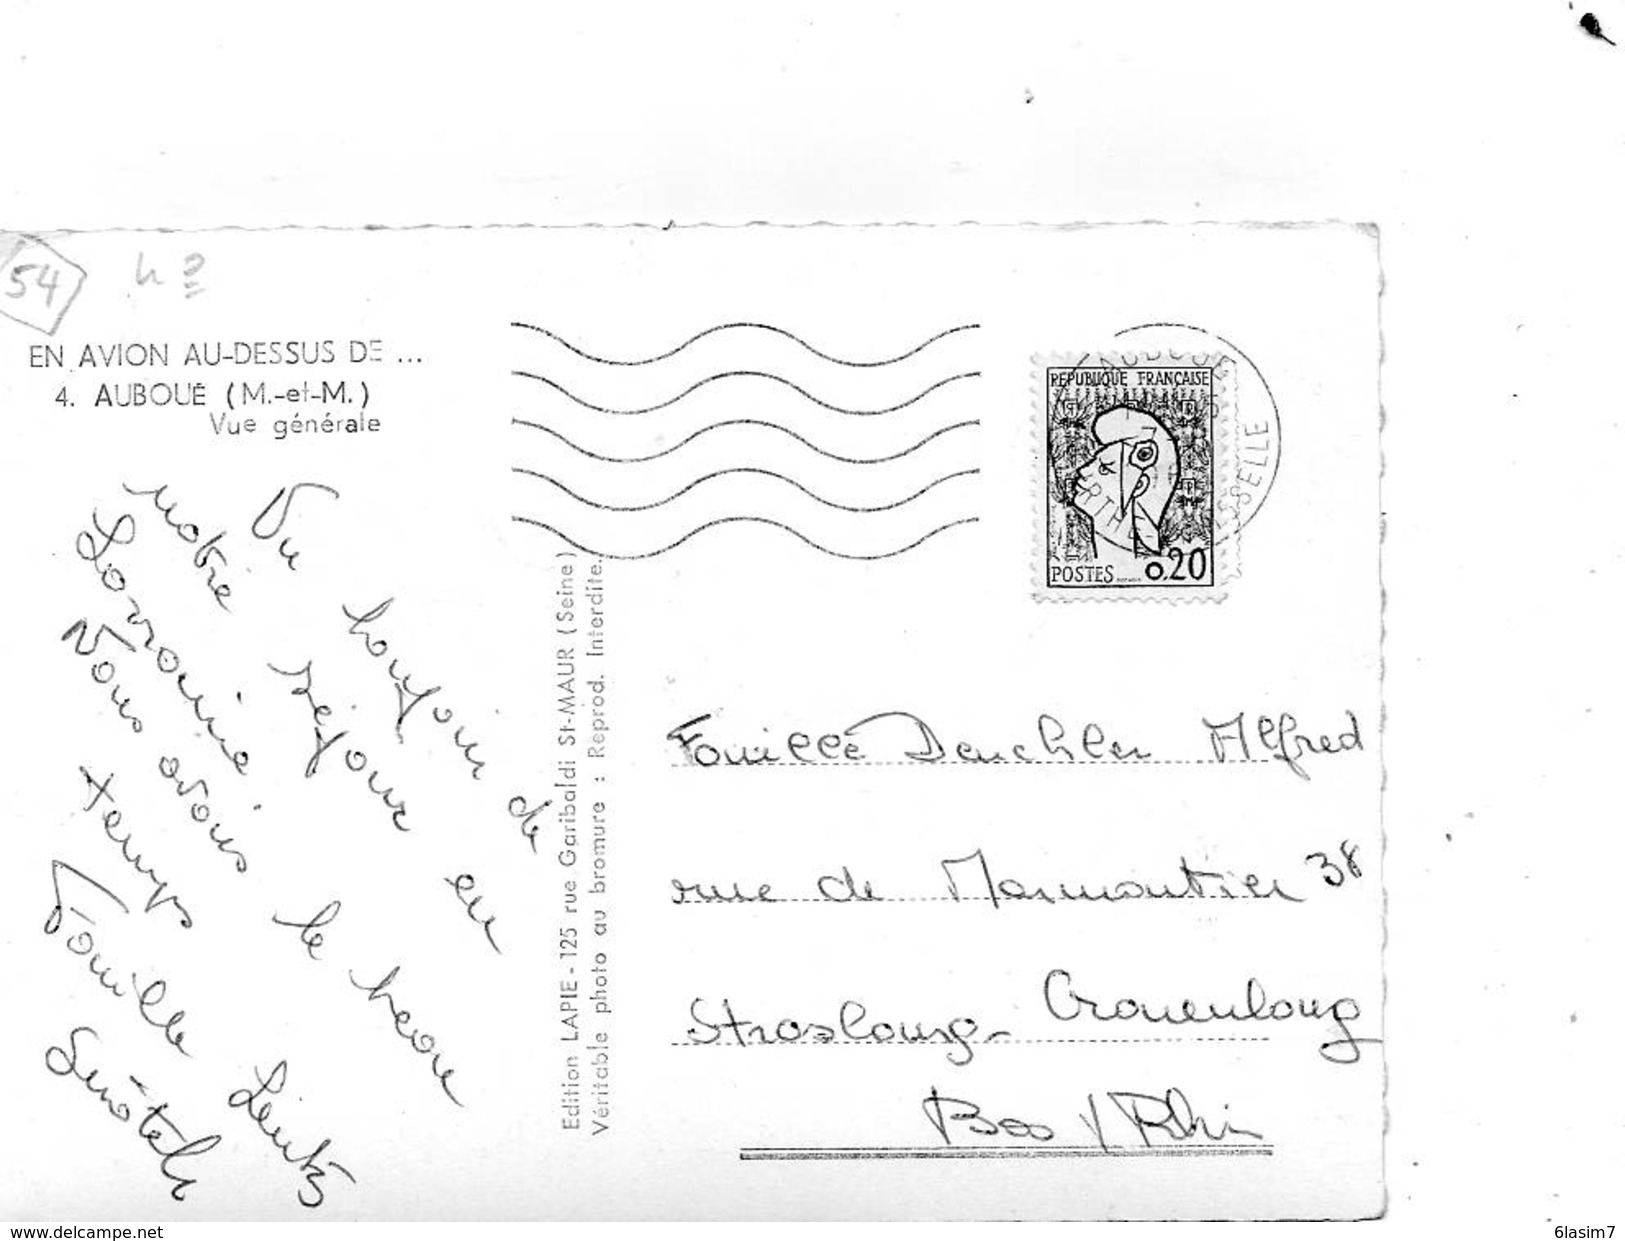 54
EN AVION AU-DESSUS DE ...
4. AUBOUÉ (M.-et-M.)
Vue générale
Un bonjour de
notre séjour en
Lorraine
Nous avons le beau
temps
Famille Leintz
Edition LAPIE - 125 rue Garibaldi St-MAUR (Seine)
Véritable photo au bromure : Reprod. Interdite.
RÉPUBLIQUE FRANÇAISE
POSTES 0,20
Famille Deuchler Alfred
rue de Marmoutier 38
Strasbourg- Cronenbourg
Bas / Rhin
www.delcampe.net
6lasim7